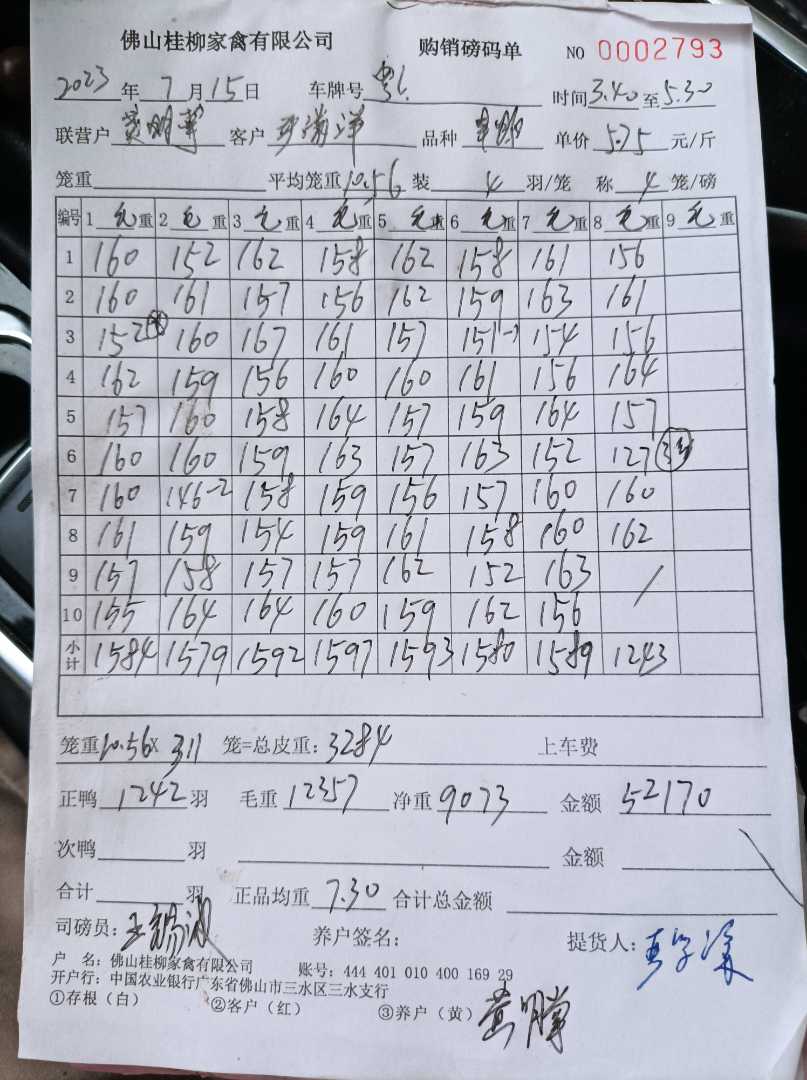 佛山桂柳家禽有限公司 购销磅码单 NO 0002793
2023 年 7 月 15 日 车牌号 时间 3.40 至 5.30
联营户 黄明掌 客户 品种 单价 5.75 元/斤
笼重 平均笼重 10.56 装 4 羽/笼 称 4 笼/磅
编号 1 毛重 2 毛重 3 毛重 4 毛重 5 毛重 6 毛重 7 毛重 8 毛重 9 毛重
1 160 152 162 158 162 158 161 156
2 160 161 157 156 162 159 163 161
3 152 160 167 161 157 151-1 154 156
4 162 159 156 160 160 161 156 164
5 157 160 158 164 157 159 164 157
6 160 160 159 163 157 163 152 127
7 160 146-2 158 159 156 157 160 160
8 161 159 154 159 161 158 160 162
9 157 158 157 157 162 152 163 /
10 155 164 164 160 159 162 156
小计 1584 1579 1592 1597 1593 1580 1589 1243
笼重 10.56 X 311 笼=总皮重: 3284 上车费
正鸭 1242 羽 毛重 12357 净重 9073 金额 52170
次鸭 羽 金额
合计 羽 正品均重 7.30 合计总金额
司磅员: 养户签名: 提货人:
户 名: 佛山桂柳家禽有限公司 账号: 444 401 010 400 169 29
开户行: 中国农业银行广东省佛山市三水区三水支行
①存根（白） ②客户（红） ③养户（黄） 黄明掌